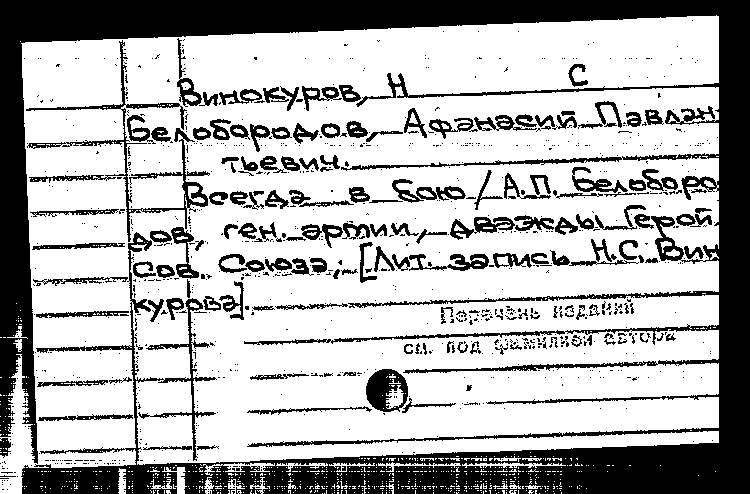 Винокуров, Н С
Белобородов, Афанасий Павлан-
тьевич.
Всегда в бою / А.П. Белоборо
дов, ген. армии, дважды Герой
Сов. Союза; [Лит. запись Н.С. Вин
курова].
Перечень изданий
см. под фамилией автора